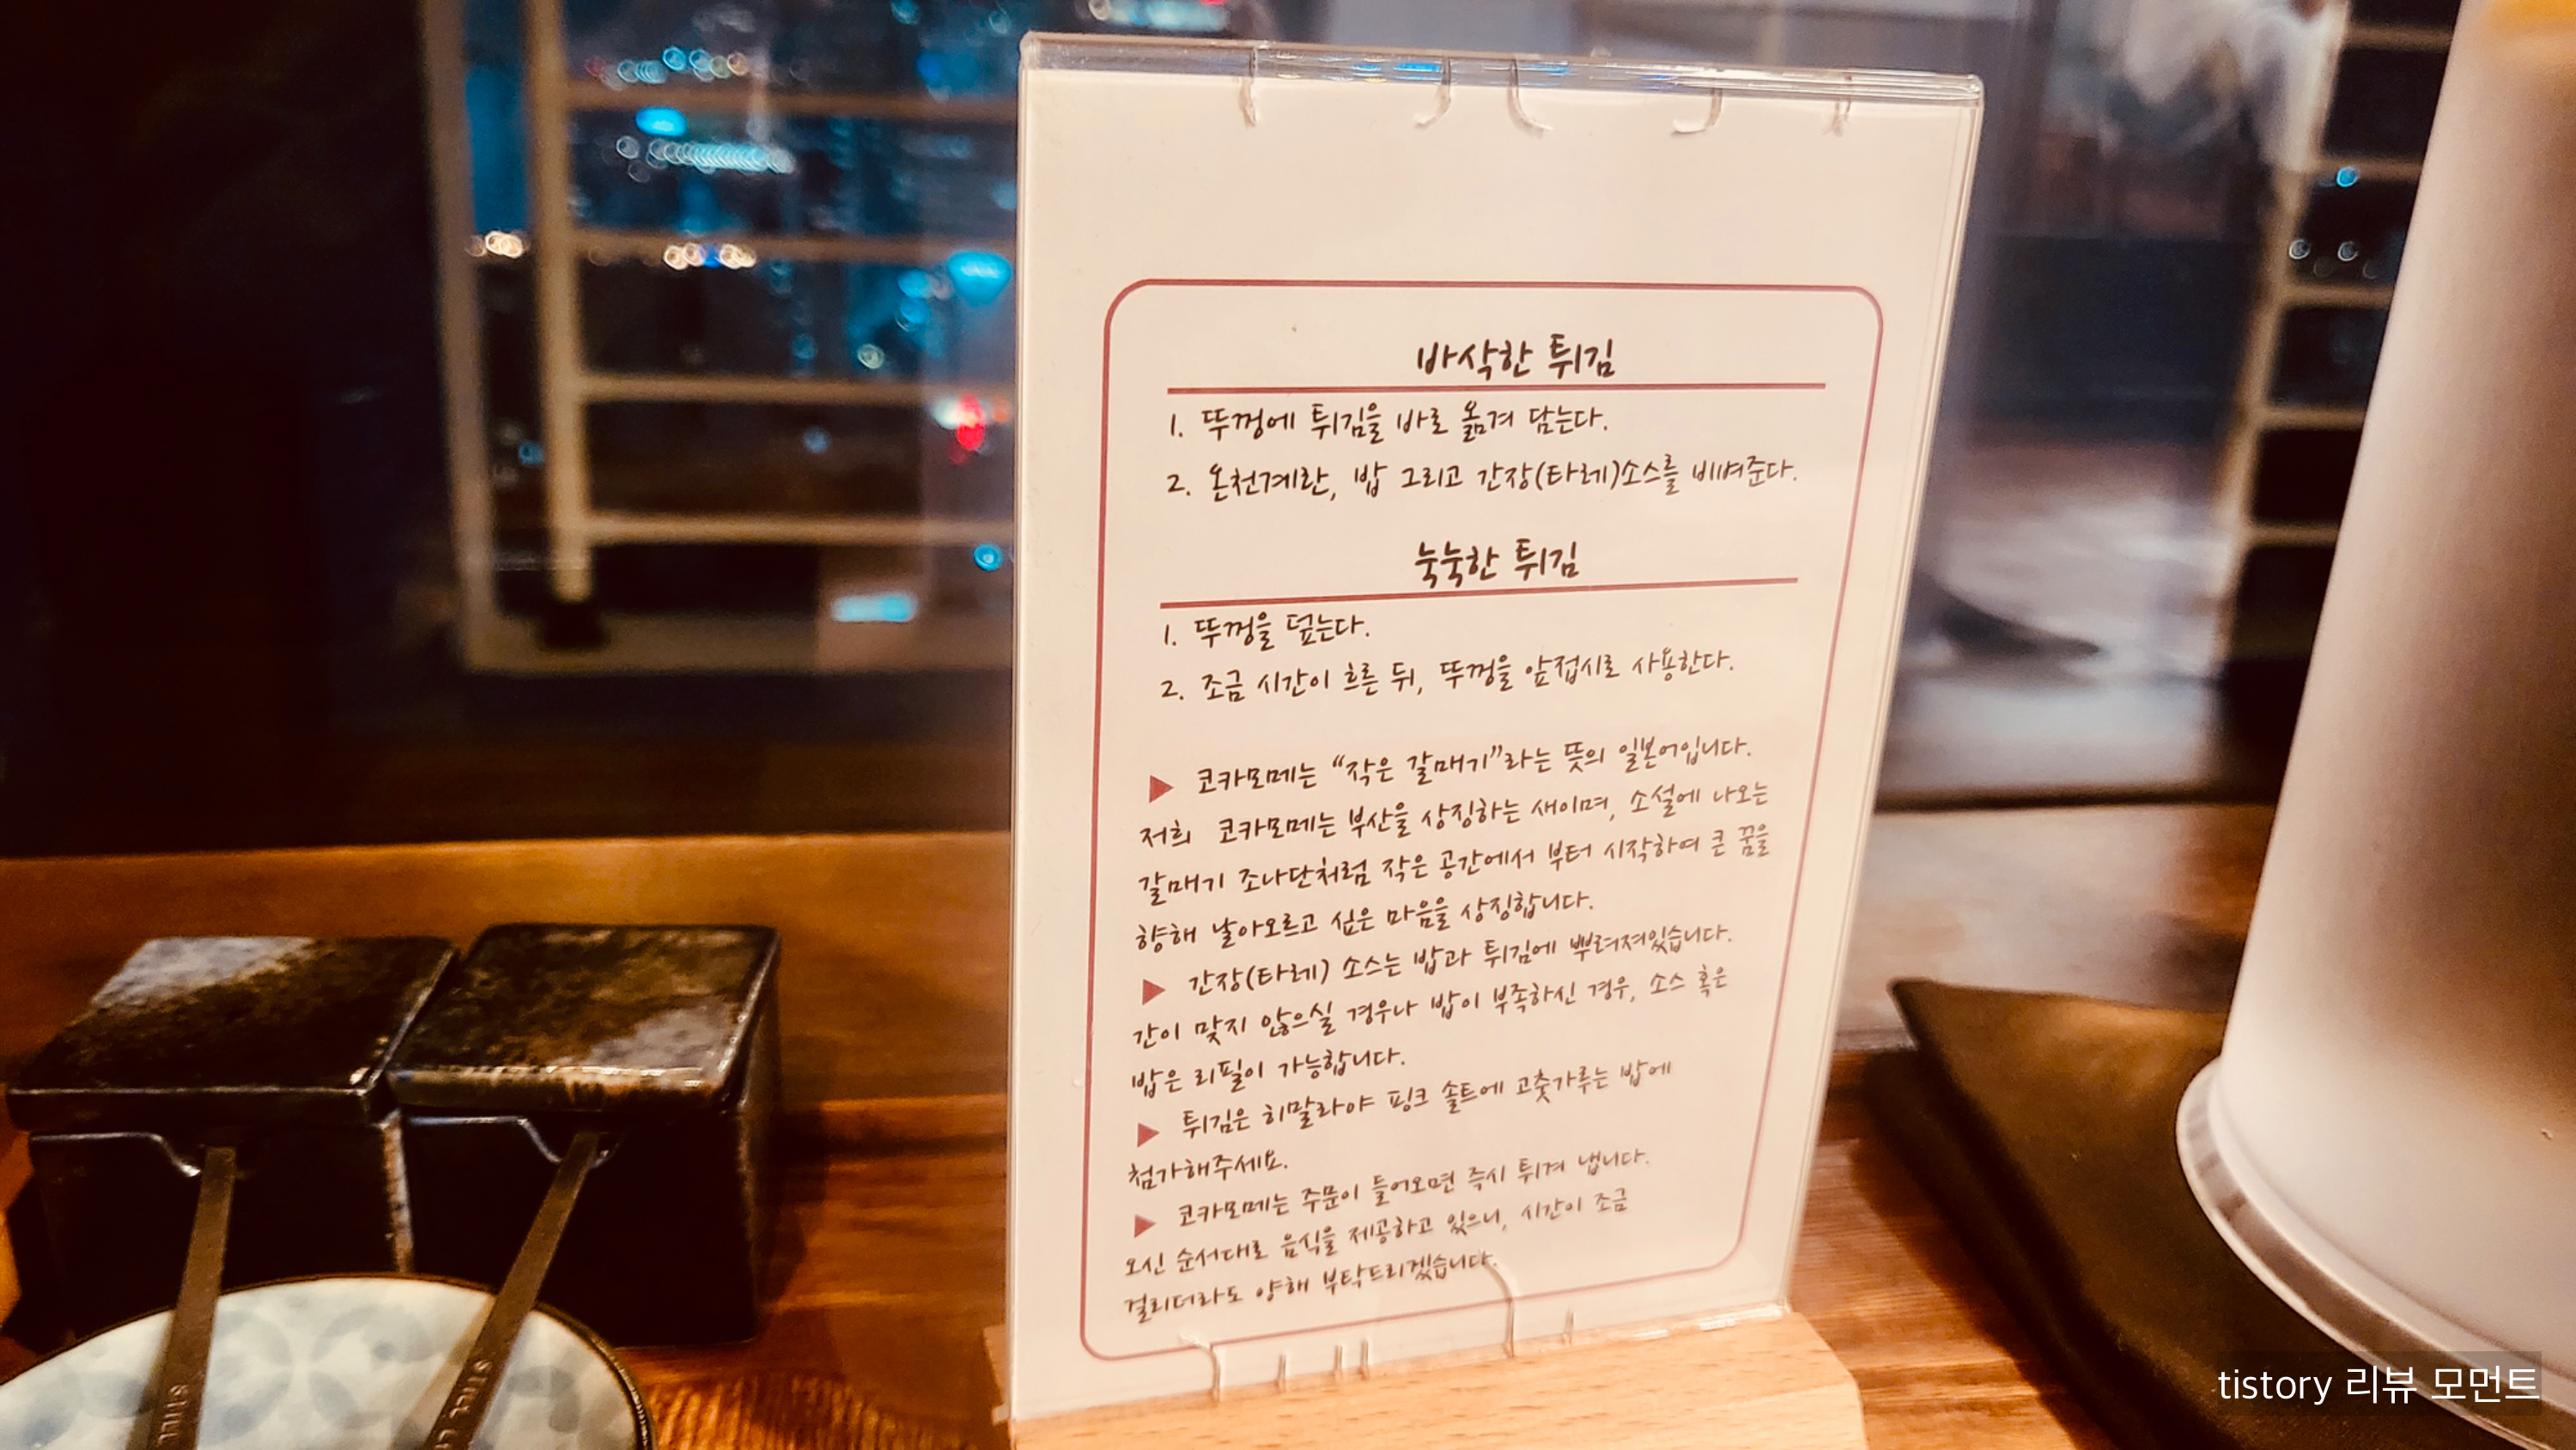 바삭한 튀김
1. 뚜껑에 튀김을 바로 옮겨 담는다.
2. 온천계란, 밥 그리고 간장(타레)소스를 비벼준다.
눅눅한 튀김
1. 뚜껑을 덮는다.
2. 조금 시간이 흐른 뒤, 뚜껑을 앞접시로 사용한다.
▶ 코카모메는 “작은 갈매기”라는 뜻의 일본어입니다.
저희 코카모메는 부산을 상징하는 새이며, 소설에 나오는
갈매기 조나단처럼 작은 공간에서 부터 시작하여 큰 꿈을
향해 날아오르고 싶은 마음을 상징합니다.
▶ 간장(타레) 소스는 밥과 튀김에 뿌려져있습니다.
간이 맞지 않으실 경우나 밥이 부족하신 경우, 소스 혹은
밥은 리필이 가능합니다.
▶ 튀김은 히말라야 핑크 솔트에 고춧가루는 밥에
첨가해주세요.
▶ 코카모메는 주문이 들어오면 즉시 튀겨 냅니다.
오신 순서대로 음식을 제공하고 있으니, 시간이 조금
걸리더라도 양해 부탁드리겠습니다.
tistory 리뷰 모먼트